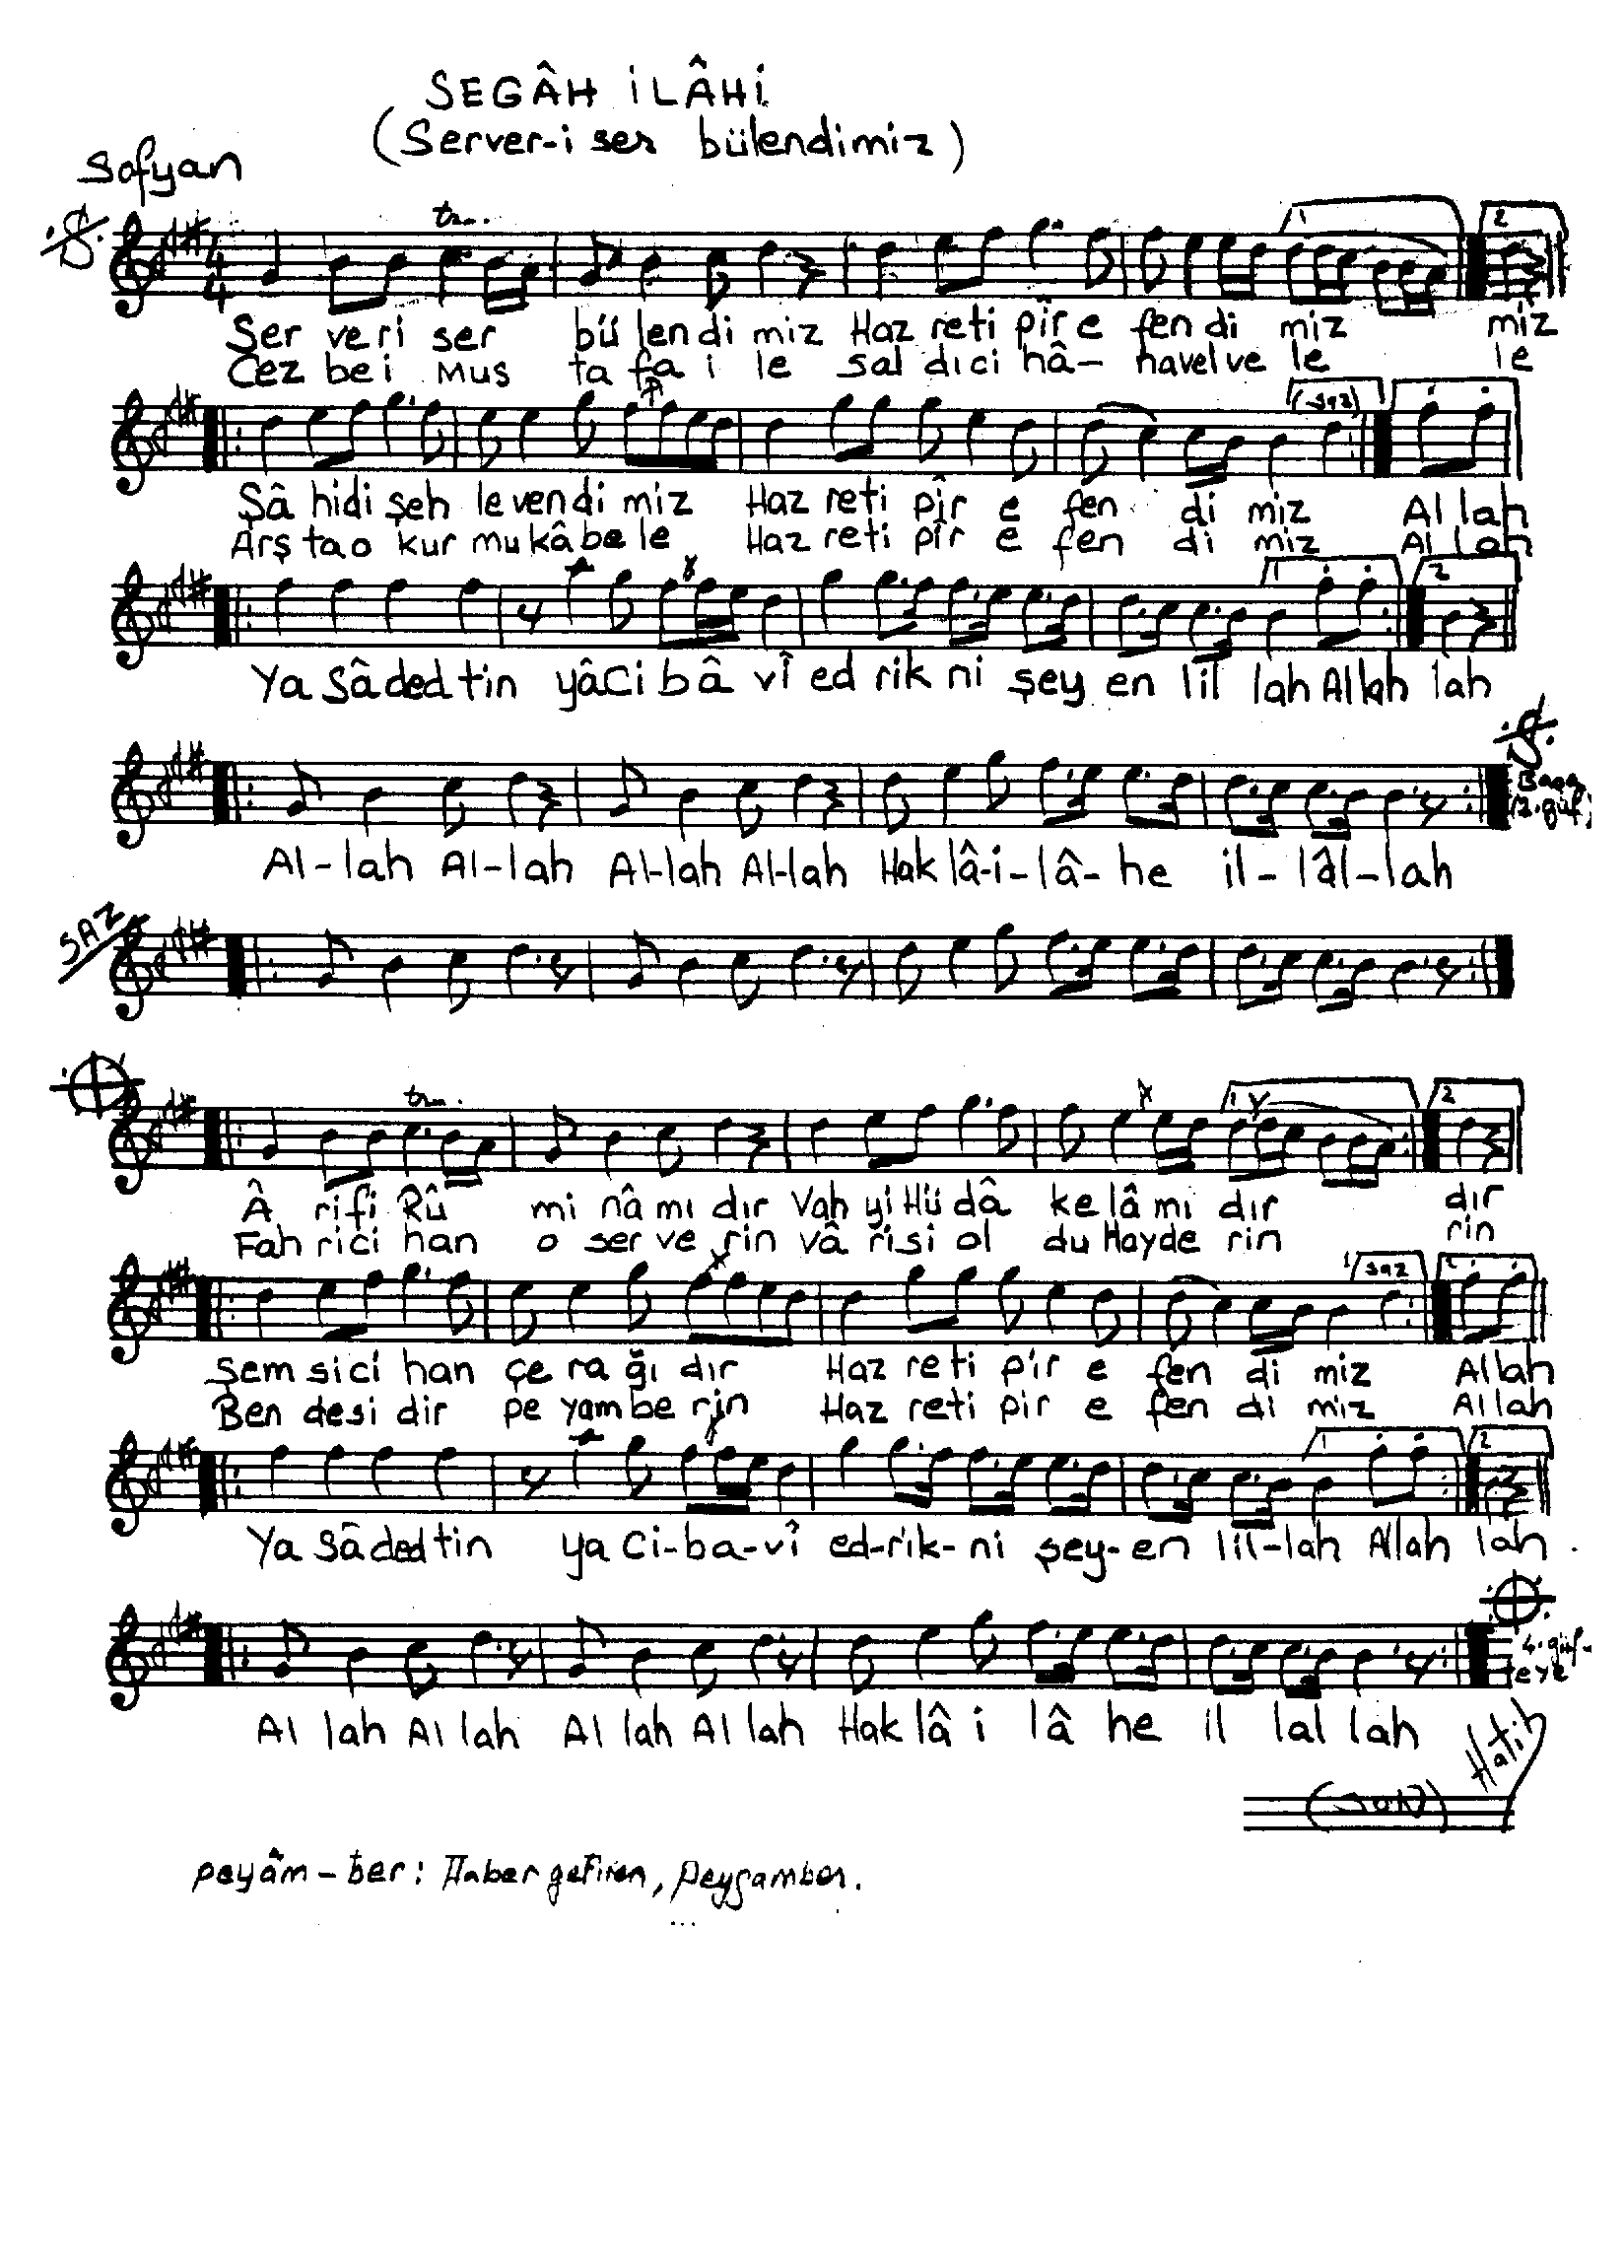 SEGÂH İLÂHİ
(Server-i ser bülendimiz)
Sofyan
tr
1 2
4
4
Ser veri ser bü lendi miz Haz reti pîr e fendi miz miz
Cez bei mus ta fa i le sal dıci hâ- havelve le le
(saz)
Şâ hidi şeh levendi miz Haz reti pîr e fen di miz Al lah
Arş tao kur mukâbele Haz reti pîr e fen di miz Al lah
1 2
Ya Sâdedtin yâCi bâ vî ed rik ni şey en lil lah Allah lah
Al-lah Al-lah Al-lah Al-lah Hak lâ-i-lâ-he il-lâl-lah
SAZ
tr
1 2
Â rifi Rû mi nâmı dır Vahyi Hü dâ ke lâ mı dır dır
Fah rici han o ser ve rin vâ risi ol du Hayde rin rin
1 saz 2
Şem sici han çe ra ğı dır Haz reti pîr e fen di miz Allah
Ben desi dir pe yambe rin Haz reti pir e fen di miz Allah
1 2
Ya Sâdedtin ya Ci-ba-vî ed-rik-ni şey-en lil-lah Allah lah
4. güf-
teye
Al lah Al lah Al lah Al lah Hak lâ i lâ he il lal lah
Hatib
(SON)
peyâm-ber: Haber getiren, Peygamber.